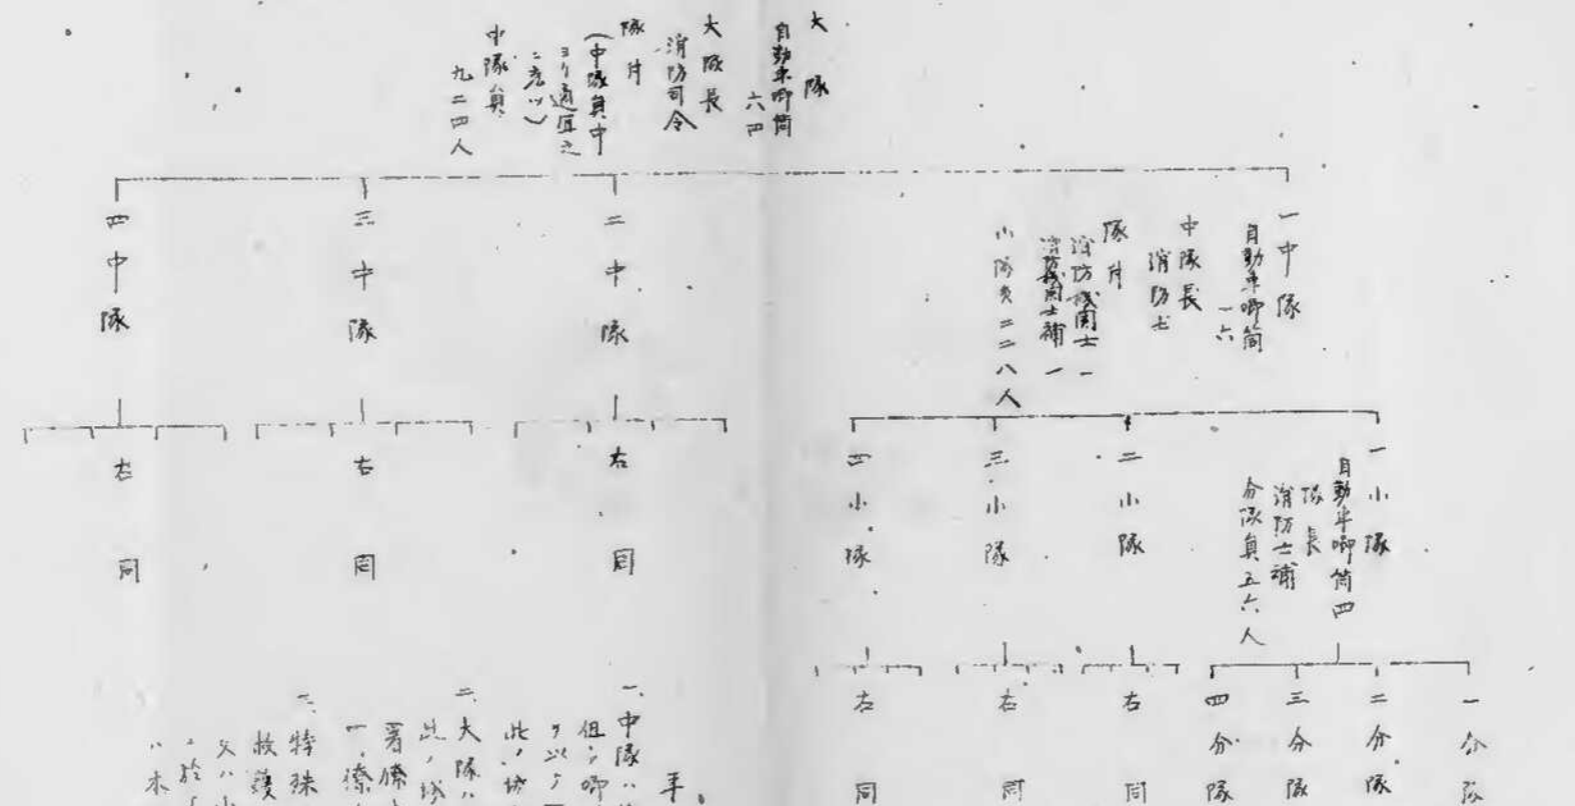 大隊
自動車喞筒
六四
大隊長
消防司令
隊付
(中隊員中
ヨリ適宜之
中隊員
九二四人
一中隊
自動車喞筒
一六
中隊長
消防士
隊付
消防機関士 一
消防機関士補 一
小隊員二二八人
二中隊
三中隊
四中隊
右同
右同
右同
一小隊
自動車喞筒四
隊長
消防士補
分隊員五六人
二小隊
三小隊
四小隊
一分隊
二分隊
三分隊
四分隊
右同
右同
右同
一、中隊ハ
但シ喞
此ノ
二、大隊ハ
此ノ
署僚
一、僚
特殊
救護
又ハ小